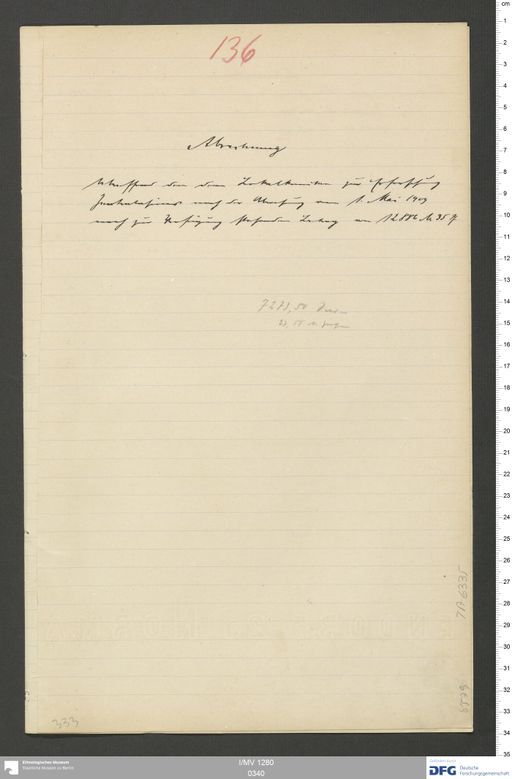 136
Abrechnung
betreffend den dem Lokalkomitee zur Erforschung
Zentralasiens nach der Abrechnung vom 1. Mai 1909
noch zur Verfügung stehenden Betrag von 12886 M 35 Pf
7273,50
333
TA 6335
I/MV 1280
0340
Ethnologisches Museum
Staatliche Museen zu Berlin
Gefördert durch
DFG Deutsche
Forschungsgemeinschaft
cm
1
2
3
4
5
6
7
8
9
10
11
12
13
14
15
16
17
18
19
20
21
22
23
24
25
26
27
28
29
30
31
32
33
34
35